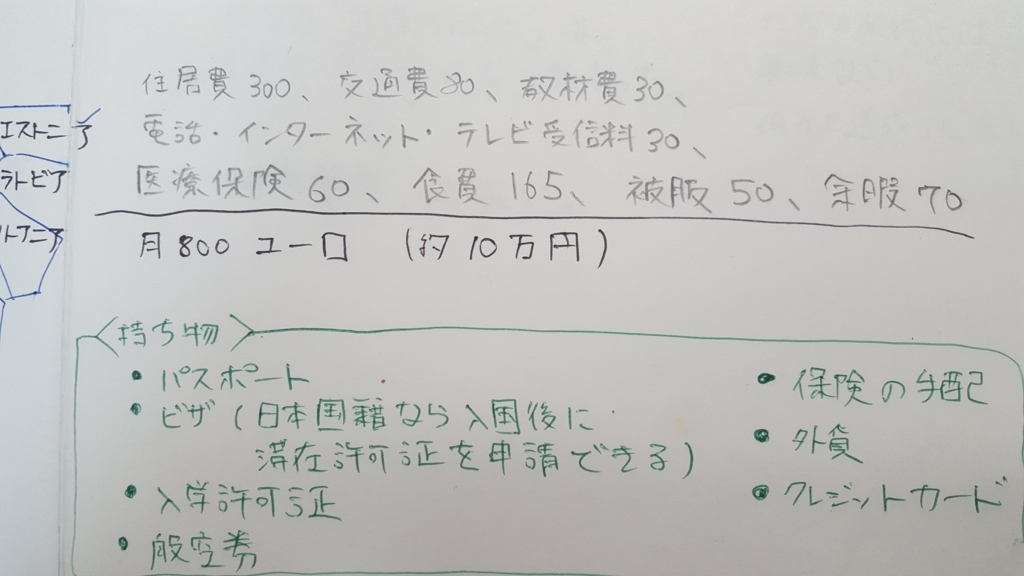 住居費300、交通費80、教材費30、
電話・インターネット・テレビ受信料30、
医療保険60、食費165、被服50、余暇70
月800ユーロ (約10万円)
エストニア
ラトビア
リトアニア
〈持ち物〉
・パスポート
・ビザ(日本国籍なら入国後に
滞在許可証を申請できる)
・入学許可証
・航空券
・保険の手配
・外貨
・クレジットカード